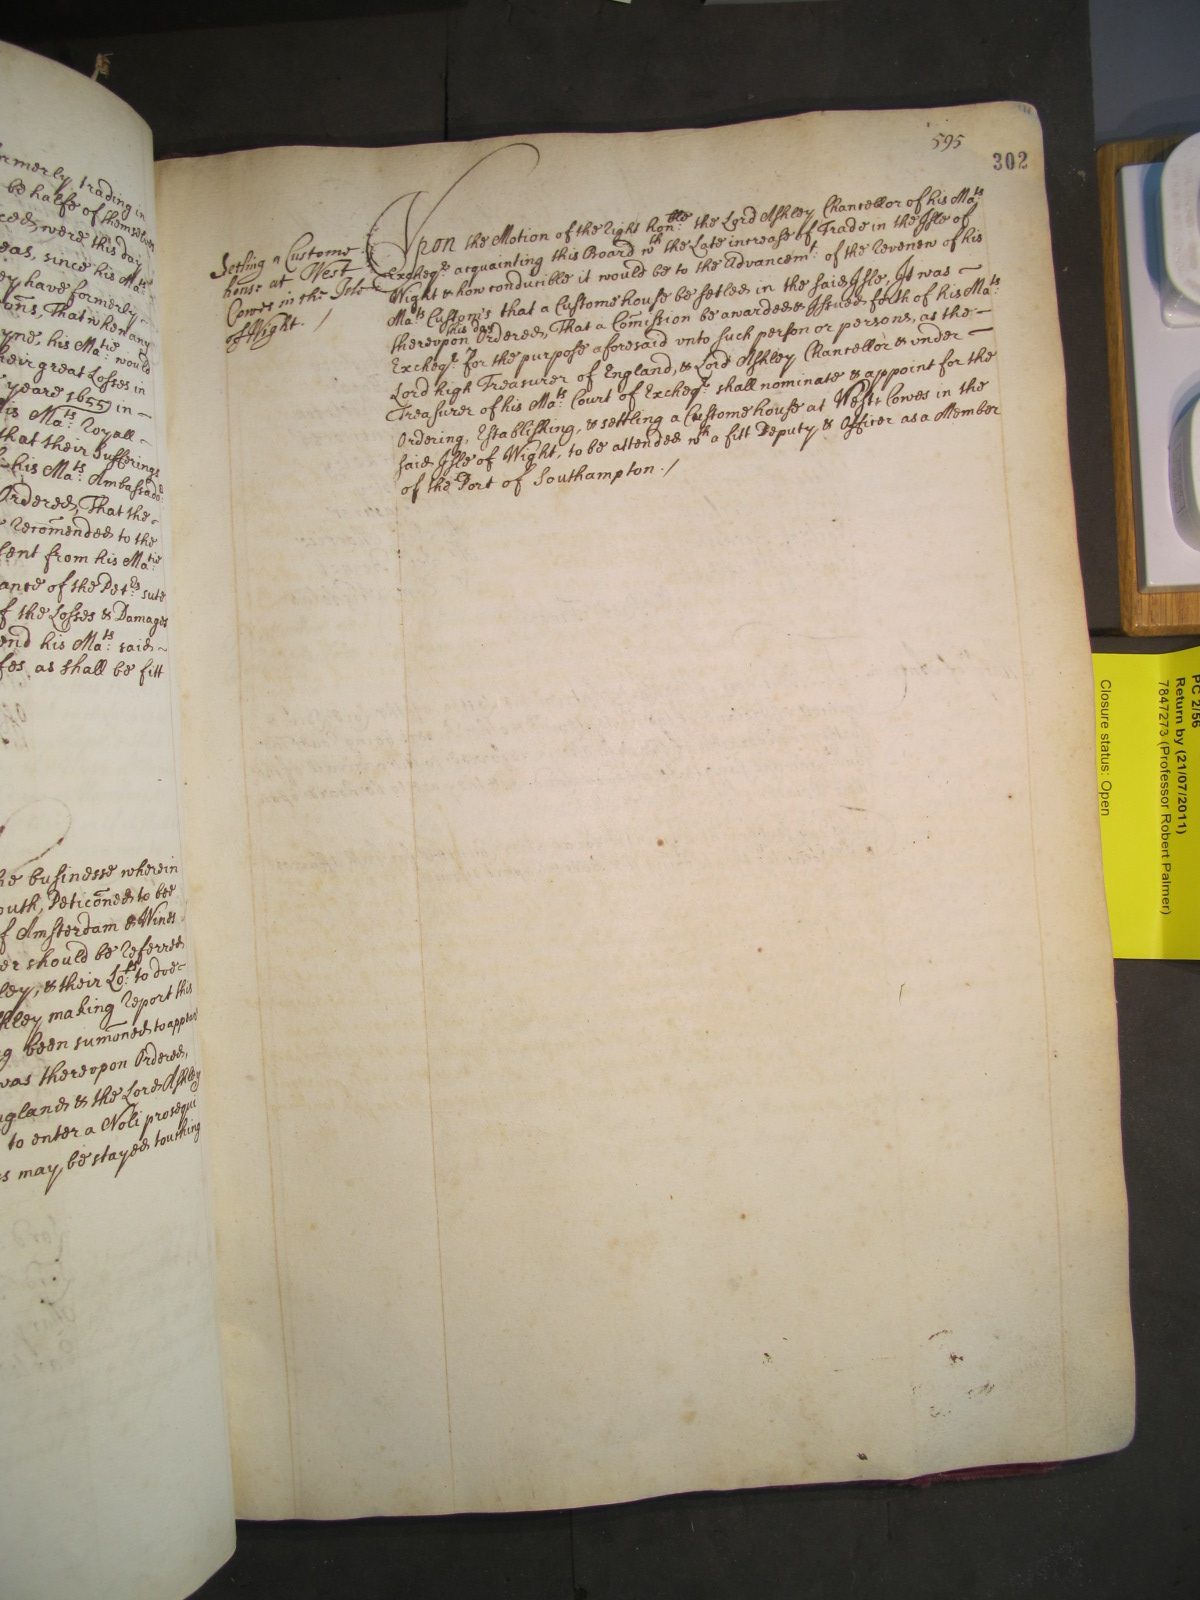 ormerly trading in
be halfe of themselves
ced, were this day
eas, since his Ma:ts
ey have formerly -
ons, That when any
yne, his Ma:tie would
heir great Losses in
yeare 1655 in -
is Ma:ts Royall -
that their Sufferings
his Ma:ts Ambassado:r
Ordered, That the -
Recomended to the
sent from his Ma:tie
ance of the Pet:rs sute
f the Losses & Damages
end his Ma:ts said -
ses as shall be fitt
he businesse wherein
outh, Peticoned to bee
f Amsterdam & Wines
er should be Referred
ley, & their Lo:ps to doe -
hley making Report this
g been sumoned to appear
was thereupon Ordered,
ngland & the Lord Ashley
to enter a Noli prosequi
s may be stayed touching
595
302
Setling a Custome
house at West
Cowes in the Isle
of Wight. /
Vpon the Motion of the Right hon:ble the Lord Ashley Chancellor of his Ma:ts
Excheq:r acquainting this Board wth the Late increase of Trade in the Isle of
Wight & how conducible it would be to the Advancem:t of the Revenew of his
Ma:ts Custom's that a Custome house be setled in the said Isle, It was -
this day
thereupon Ordered, That a Comission be awarded & Issued forth of his Ma:ts
Excheq:r for the purpose aforesaid vnto such person or persons, as the -
Lord high Treasurer of England, & Lord Ashley Chancellor & vnder -
Treasurer of his Ma:ts Court of Excheq:r shall nominate & appoint for the
Ordering, Establishing, & settling a Custome house at West Cowes in the
said Isle of Wight, to be attended wth a fitt Deputy & Officer as a Member
of the Port of Southampton. /
PC 2/56
Return by (21/07/2011)
7847273 (Professor Robert Palmer)
Closure status: Open